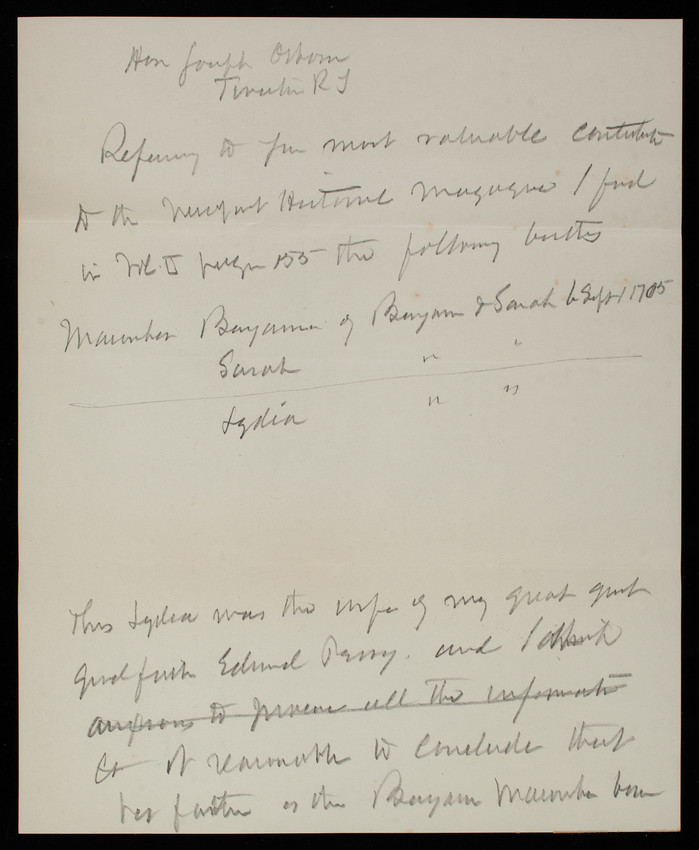 Hon Joseph Osborn
Tiverton R I
Referring to your most valuable contribution
to the Newport Historical Magazine I find
in Vol. II page 155 the following births
Macomber Benjamin of Benjam & Sarah 6 Sept 1705
Sarah " "
Lydia " "
This Lydia was the wife of my great great
grandfather Edward Perry. and I think
anxious to procure all the information
it reasonable to conclude that
her father is the Benjam Macomber born